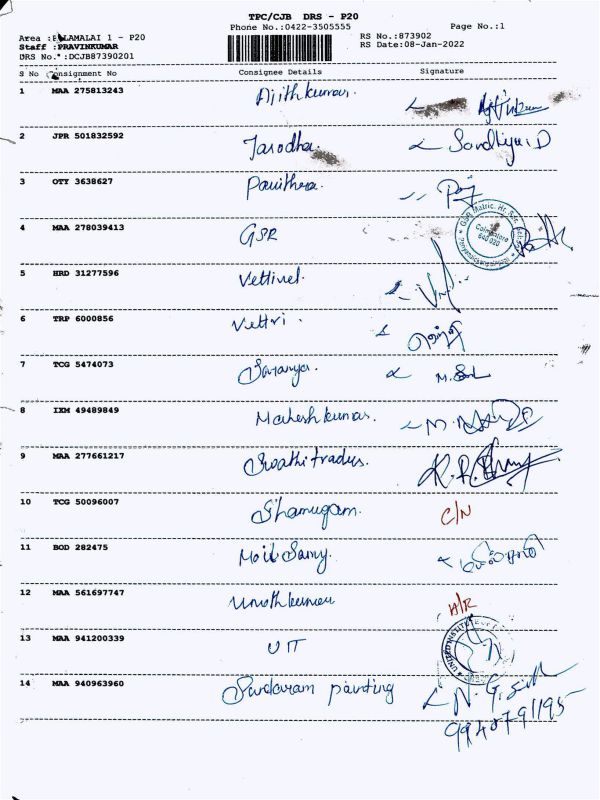 TPC/CJB DRS - P20
Phone No.:0422-3505555 Page No.:1
Area : LAMALAI 1 - P20 RS No.:873902
Staff :PRAVINKUMAR RS Date:08-Jan-2022
DRS No. :DCJB87390201
S No Consignment No Consignee Details Signature
1 MAA 275813243 Ajithkumar.
2 JPR 501832592 Jarodha. Sandhiya D
3 OTY 3638627 Pavithra.
4 MAA 278039413 GSR GSR Matric. Hr. Sec. Coimbatore
5 HRD 31277596 Vettivel.
6 TRP 6000856 Vettri.
7 TCG 5474073 Saranya.
8 IXM 49489849 Maheshkumar.
9 MAA 277661217 Swathi traders.
10 TCG 50096007 Shamugam. C/N
11 BOD 282475 Moil Samy.
12 MAA 561697747 Vinothkumar H/R
13 MAA 941200339 UIT UNITED INSTITUTE OF
14 MAA 940963960 Sundaram painting